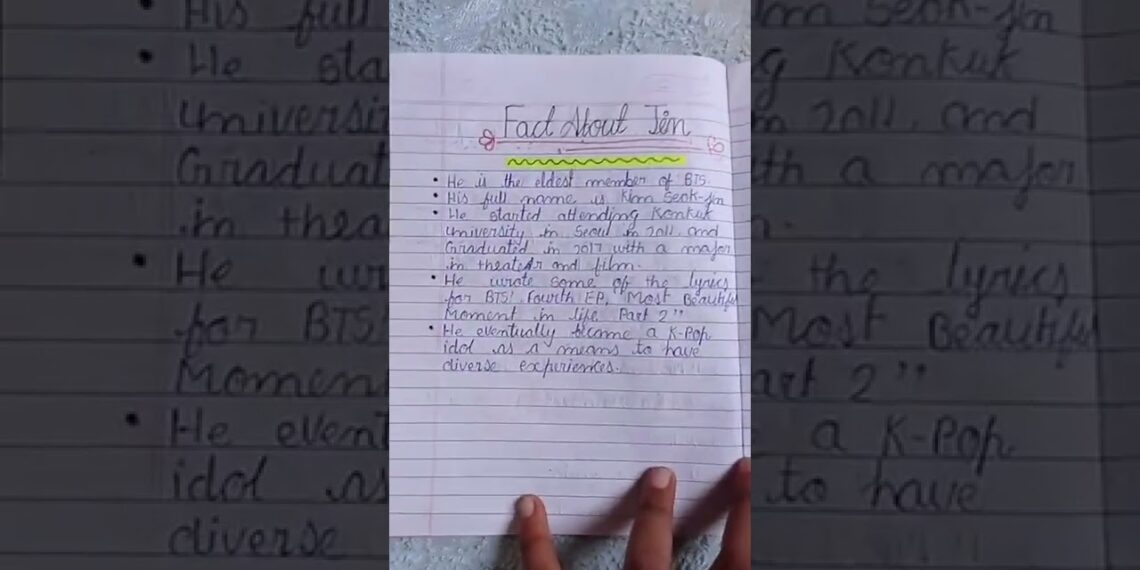 Fact About Jin
• He is the eldest member of BTS.
• His full name is Kim Seok-jin
• He started attending Konkuk
University in Seoul in 2011, and
Graduated in 2017 with a major
in theater and film.
• He wrote some of the lyrics
for BTS' Fourth EP, "Most Beautiful
Moment in life, Part 2"
• He eventually became a K-Pop
idol as a means to have
diverse experiences.